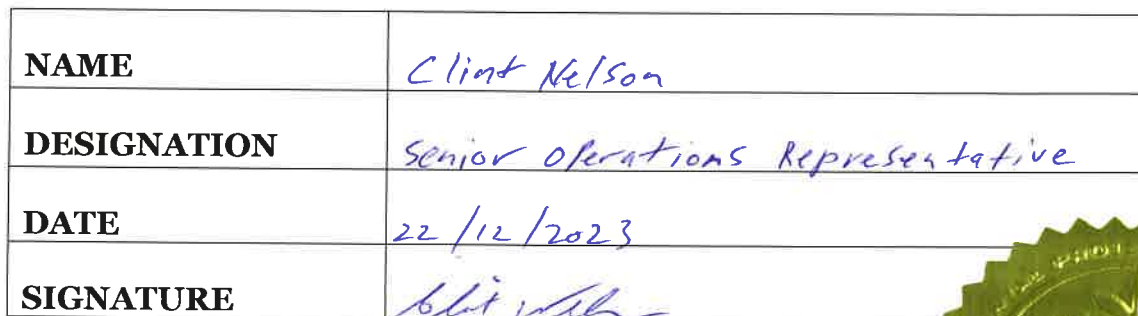 NAME Clint Nelson
DESIGNATION Senior Operations Representative
DATE 22/12/2023
SIGNATURE